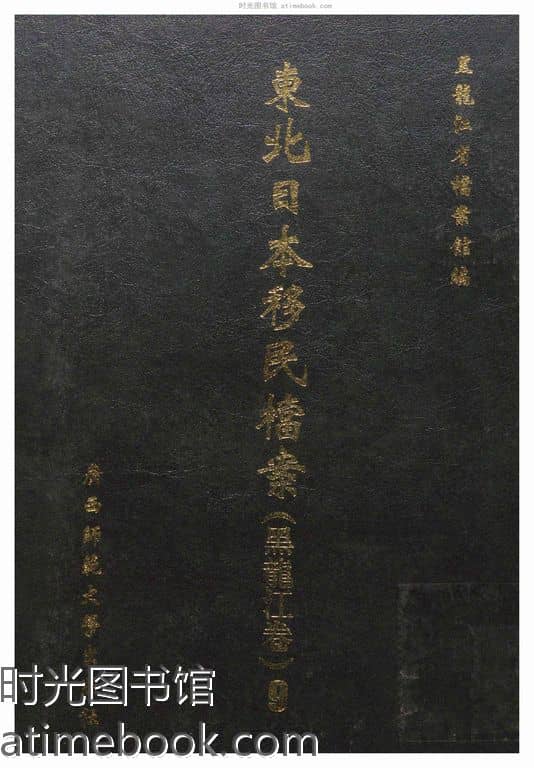 时光图书馆 atimebook.com
黑龍江省檔案館編
東北日本移民檔案(黑龍江卷)9
廣西師範大學
时光图书馆
atimebook.com